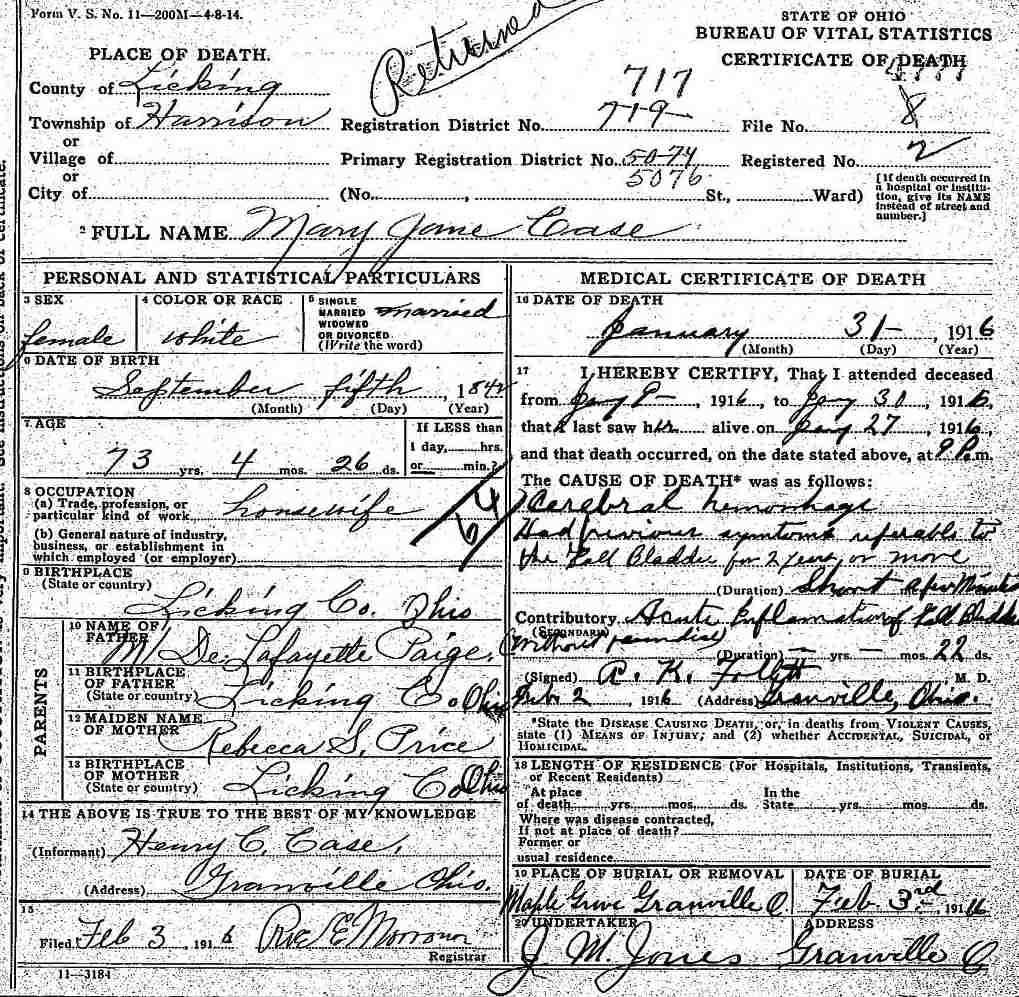 Form V. S. No. 11—200M—4-8-14.
Returned
STATE OF OHIO
BUREAU OF VITAL STATISTICS
CERTIFICATE OF DEATH
PLACE OF DEATH.
County of Licking
717
Township of Harrison Registration District No. 719 File No. 8
or
Village of Primary Registration District No. 5074 Registered No. 2
or
5076
City of (No. , St., Ward)
[If death occurred in a hospital or institution, give its NAME instead of street and number.]
2 FULL NAME Mary Jane Case
PERSONAL AND STATISTICAL PARTICULARS
3 SEX
female
4 COLOR OR RACE
white
5 SINGLE
MARRIED
WIDOWED
OR DIVORCED
(Write the word)
married
6 DATE OF BIRTH
September fifth, 1842
(Month) (Day) (Year)
7 AGE
73 yrs. 4 mos. 26 ds.
If LESS than
1 day, hrs.
or min.?
8 OCCUPATION
(a) Trade, profession, or
particular kind of work housewife
(b) General nature of industry,
business, or establishment in
which employed (or employer)
64
9 BIRTHPLACE
(State or country)
Licking Co. Ohio
PARENTS
10 NAME OF
FATHER
M. De Lafayette Paige
11 BIRTHPLACE
OF FATHER
(State or country) Licking Co Ohio
12 MAIDEN NAME
OF MOTHER
Rebecca S. Price
13 BIRTHPLACE
OF MOTHER
(State or country) Licking Co Ohio
14 THE ABOVE IS TRUE TO THE BEST OF MY KNOWLEDGE
(Informant) Henry C. Case,
(Address) Granville Ohio.
15
Filed Feb 3, 1916
Registrar
11—3184
MEDICAL CERTIFICATE OF DEATH
16 DATE OF DEATH
January 31, 1916
(Month) (Day) (Year)
17 I HEREBY CERTIFY, That I attended deceased
from Jany 8, 1916, to Jany 30, 1916,
that I last saw her alive on Jany 27, 1916,
and that death occurred, on the date stated above, at 9 P.m.
The CAUSE OF DEATH* was as follows:
Cerebral hemorrhage
Had previous symptoms referable to
the Gall Bladder for 2 years or more
(Duration) Short a few Minutes
Contributory Acute Inflamation of Gall Bladder
(SECONDARY)
without jaundice
(Duration) — yrs. — mos. 22 ds.
(Signed) A. K. Follett M. D.
Feb. 2 1916 (Address) Granville, Ohio.
*State the DISEASE CAUSING DEATH, or, in deaths from VIOLENT CAUSES,
state (1) MEANS OF INJURY; and (2) whether ACCIDENTAL, SUICIDAL, or
HOMICIDAL.
18 LENGTH OF RESIDENCE (For Hospitals, Institutions, Transients,
or Recent Residents)
At place of death yrs. mos. ds. In the State yrs. mos. ds.
Where was disease contracted,
If not at place of death?
Former or
usual residence
19 PLACE OF BURIAL OR REMOVAL
Maple Grove Granville O.
DATE OF BURIAL
Feb 3rd, 1916
20 UNDERTAKER
J. M. Jones
ADDRESS
Granville O